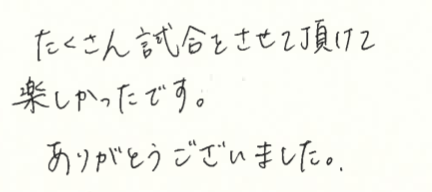 たくさん試合をさせて頂けて
楽しかったです。
ありがとうございました。